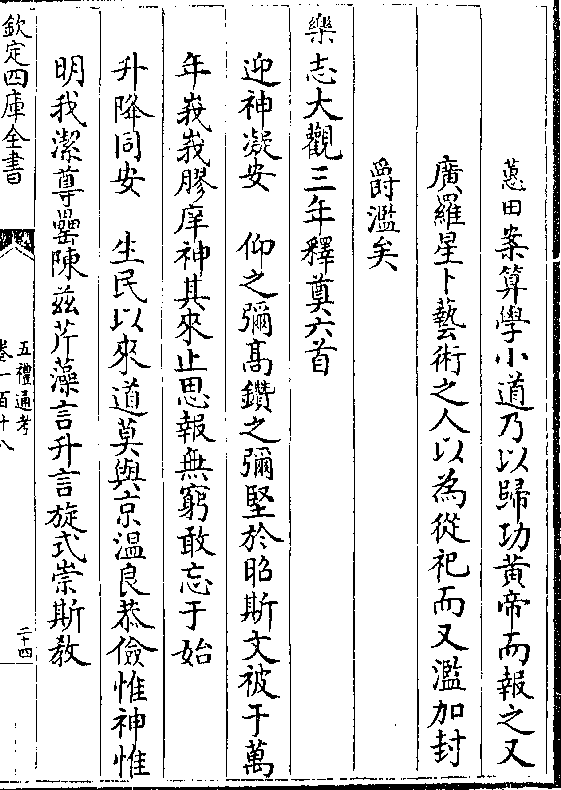 蕙田案算學小道乃以歸功黄帝而報之又
廣羅星卜藝術之人以為從祀而又濫加封
爵濫矣
樂志大觀三年釋奠六首
迎神凝安 仰之彌髙鑽之彌堅於昭斯文被于萬
年峩峩膠庠神其來止思報無窮敢忘于始
升降同安 生民以來道莫與京温良恭儉惟神惟
明我潔尊罍陳兹芹藻言升言旋式崇斯敎
欽定四庫全書
五禮通考
卷一百十八
二十四